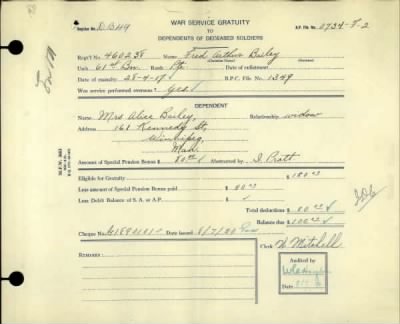 WAR SERVICE GRATUITY
TO
DEPENDENTS OF DECEASED SOLDIERS
Register No.
A.P. File No. 0734-F-2
Reg't'l No. 460238 Name Fred Arthur Bailey
(Christian Name) (Surname)
Unit 61st Bn Rank Pte Date of enlistment
Date of casualty 28-4-17 B.P.C. File No. 1349
Was service performed overseas? Yes
DEPENDENT
Name Mrs Alice Bailey, Relationship widow
Address 161 Kennedy St,
Winnipeg,
Man.
Amount of Special Pension Bonus $ 80.00 Abstracted by
Eligible for Gratuity $ 180.00
Less amount of Special Pension Bonus paid $ 80.00
Less Debit Balance of S. A. or A.P. $
Total deductions $ 80.00
Balance due $ 100.00
Cheque No. Date issued
Clerk W Mitchell
Audited by